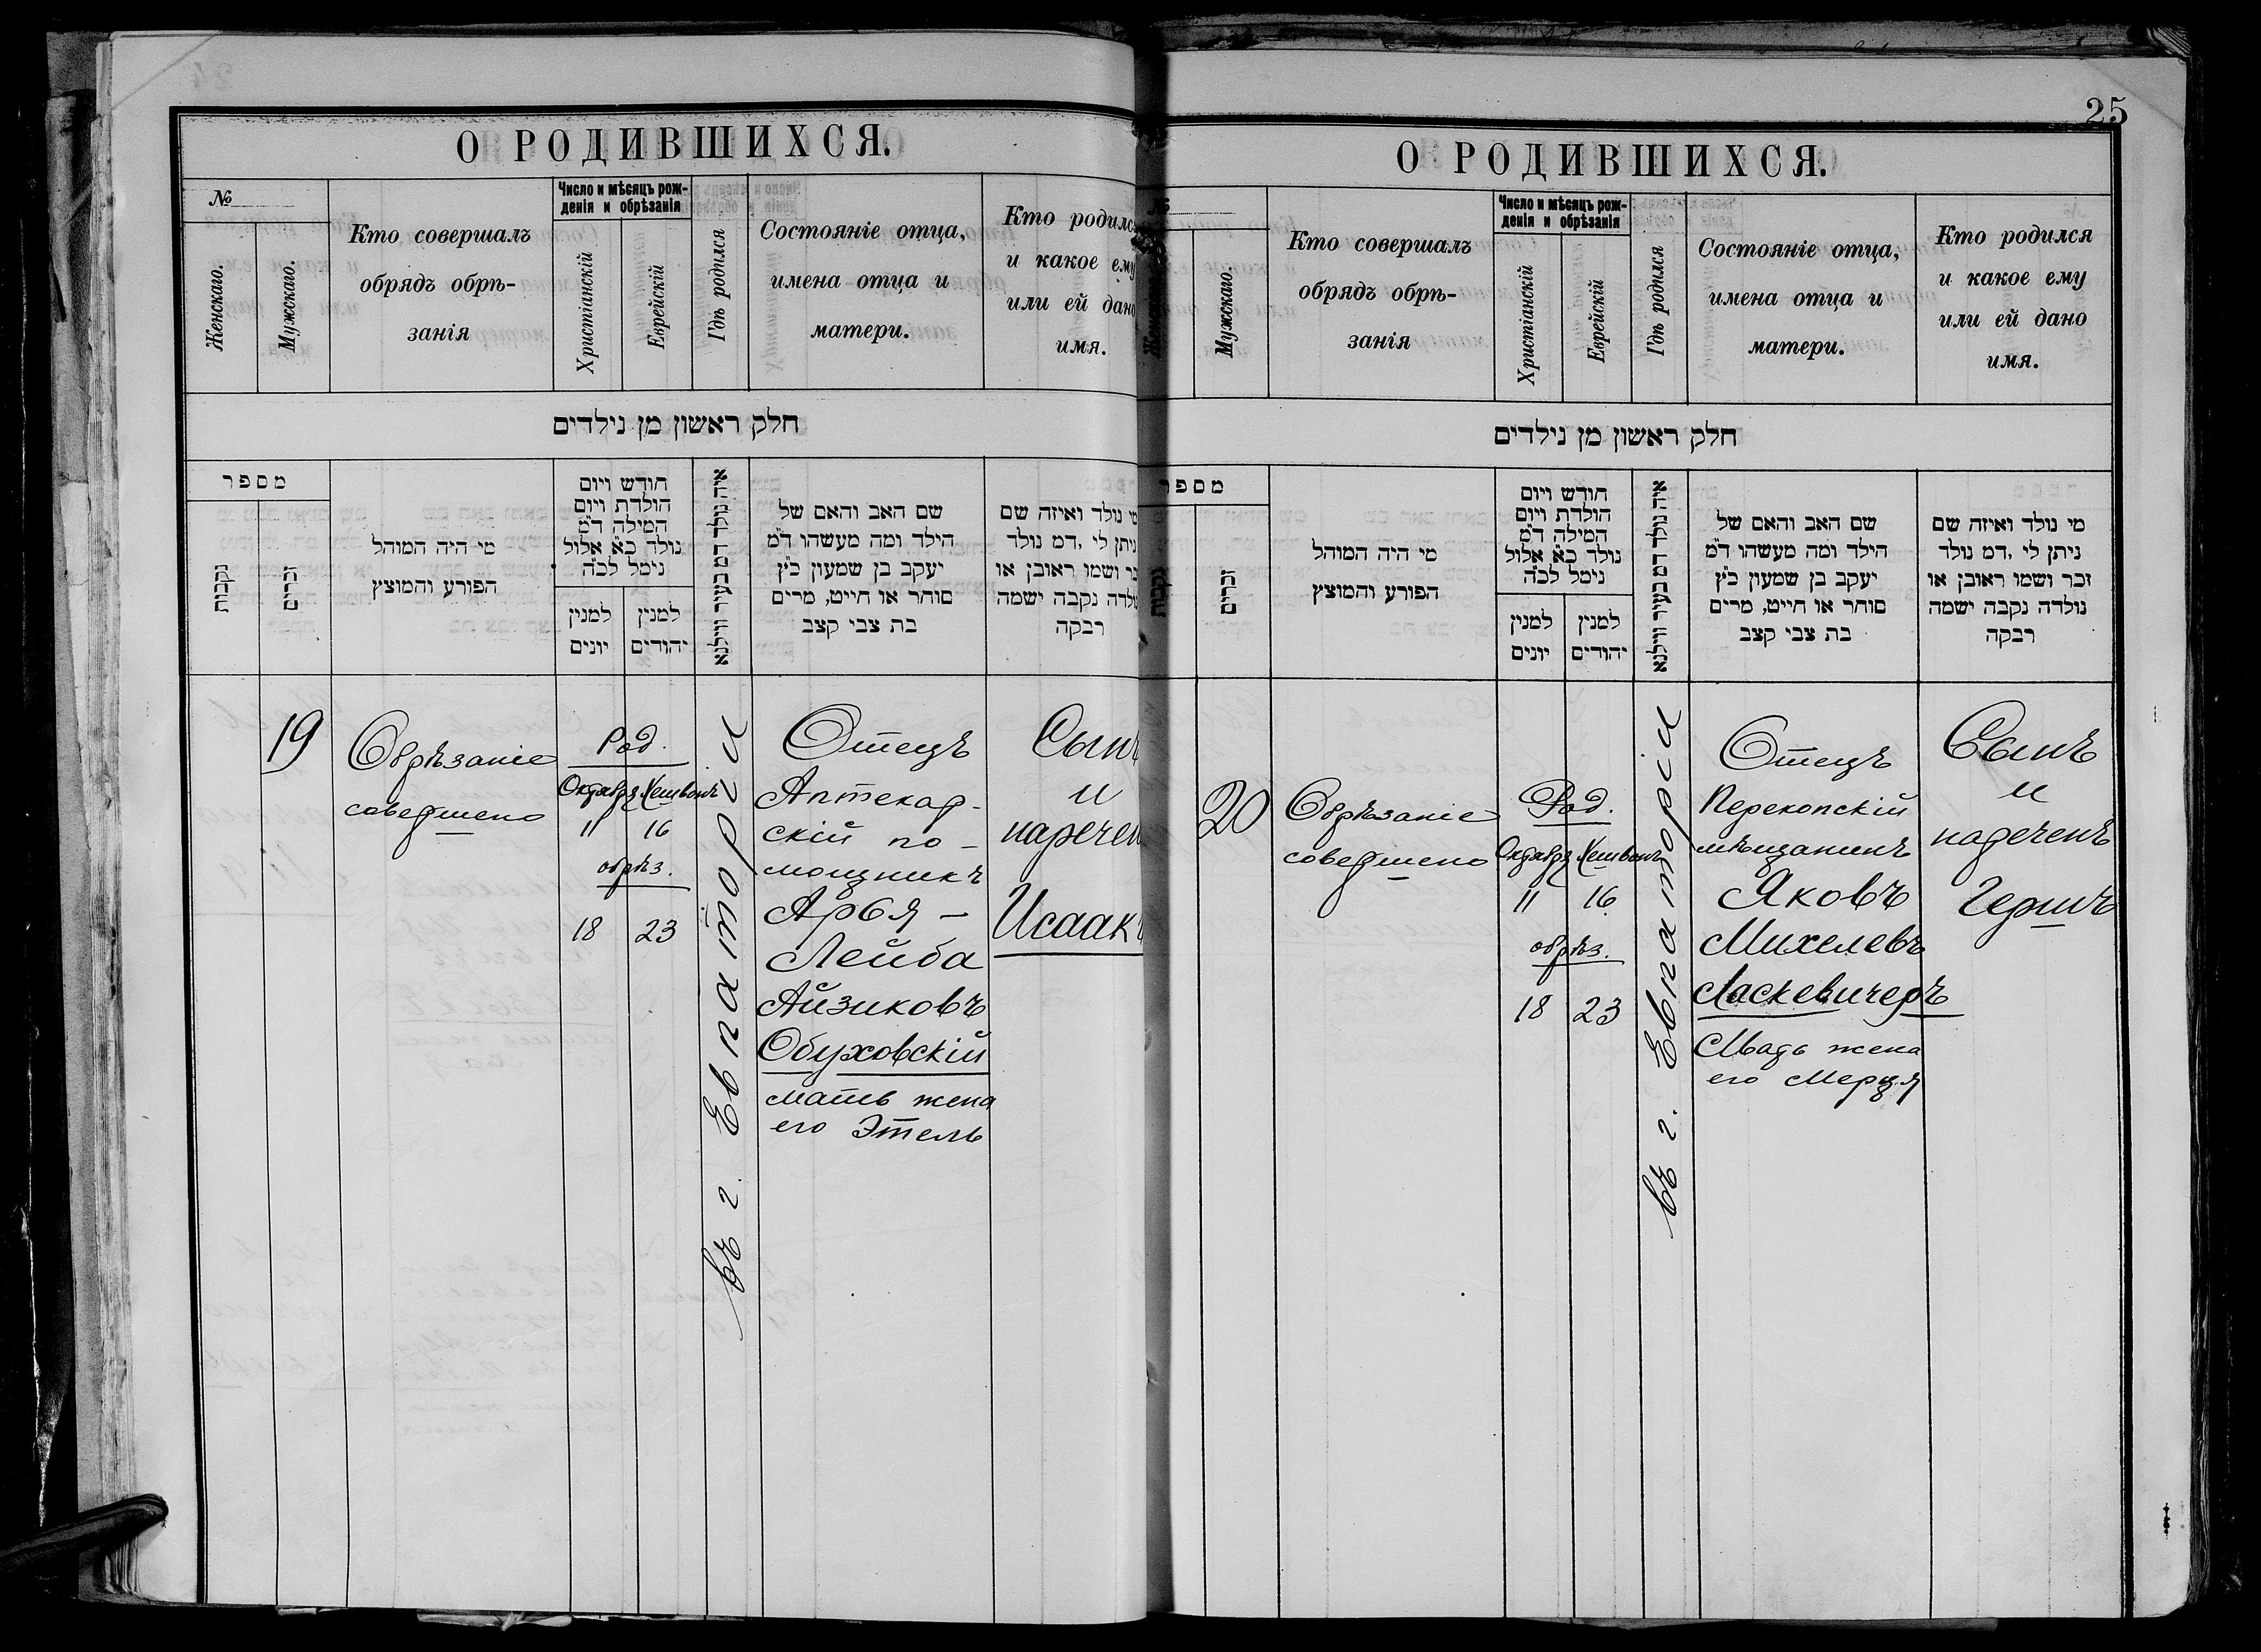 О РОДИВШИХСЯ.
№
Женскаго.
Мужскаго.
Кто совершалъ
обрядъ обрѣ-
занія
Число и мѣсяцъ рож-
денія и обрѣзанія
Христіанскій
Еврейскій
Гдѣ родился
Состояніе отца,
имена отца и
матери.
Кто родился
и какое ему
или ей дано
имя.
חלק ראשון מן נילדים
מספר
נקבות
זכרים
מי היה המוהל
הפורע והמוצץ
חודש ויום
הולדת ויום
המילה ד״מ
נולד כ״א אלול
נימל לכ״ה
למנין
יונים
למנין
יהודים
איה נולד דמ בעיר ווילנא
שם האב והאם של
הילד ומה מעשהו ד״מ
יעקב בן שמעון כ״ץ
סוחר או חייט, מרים
בת צבי קצב
מי נולד ואיזה שם
ניתן לי ,דמ נולד
זכר ושמו ראובן או
נולדה נקבה ישמה
רבקה
19
Обрѣзаніе
совершено
Род.
Октября Хешвонъ
11 16
обрѣз.
18 23
въ г. Евпаторіи
Отецъ
Аптекар-
скій по-
мощникъ
Арья-
Лейба
Айзиковъ
Обуховскій
мать жена
его Этель
Сынъ
и
наречен
Исаакъ
25
О РОДИВШИХСЯ.
№
Женскаго.
Мужскаго.
Кто совершалъ
обрядъ обрѣ-
занія
Число и мѣсяцъ рож-
денія и обрѣзанія
Христіанскій
Еврейскій
Гдѣ родился
Состояніе отца,
имена отца и
матери.
Кто родился
и какое ему
или ей дано
имя.
חלק ראשון מן נילדים
מספר
נקבות
זכרים
מי היה המוהל
הפורע והמוצץ
חודש ויום
הולדת ויום
המילה ד״מ
נולד כ״א אלול
נימל לכ״ה
למנין
יונים
למנין
יהודים
איה נולד דמ בעיר ווילנא
שם האב והאם של
הילד ומה מעשהו ד״מ
יעקב בן שמעון כ״ץ
סוחר או חייט, מרים
בת צבי קצב
מי נולד ואיזה שם
ניתן לי ,דמ נולד
זכר ושמו ראובן או
נולדה נקבה ישמה
רבקה
20
Обрѣзаніе
совершено
Род.
Октября Хешвонъ
11 16
обрѣз.
18 23
въ г. Евпаторіи
Отецъ
Перекопскій
мѣщанинъ
Яковъ
Михелевъ
Ласкевичеръ
Мать жена
его Мерця
Сынъ
и
нареченъ
Гершъ